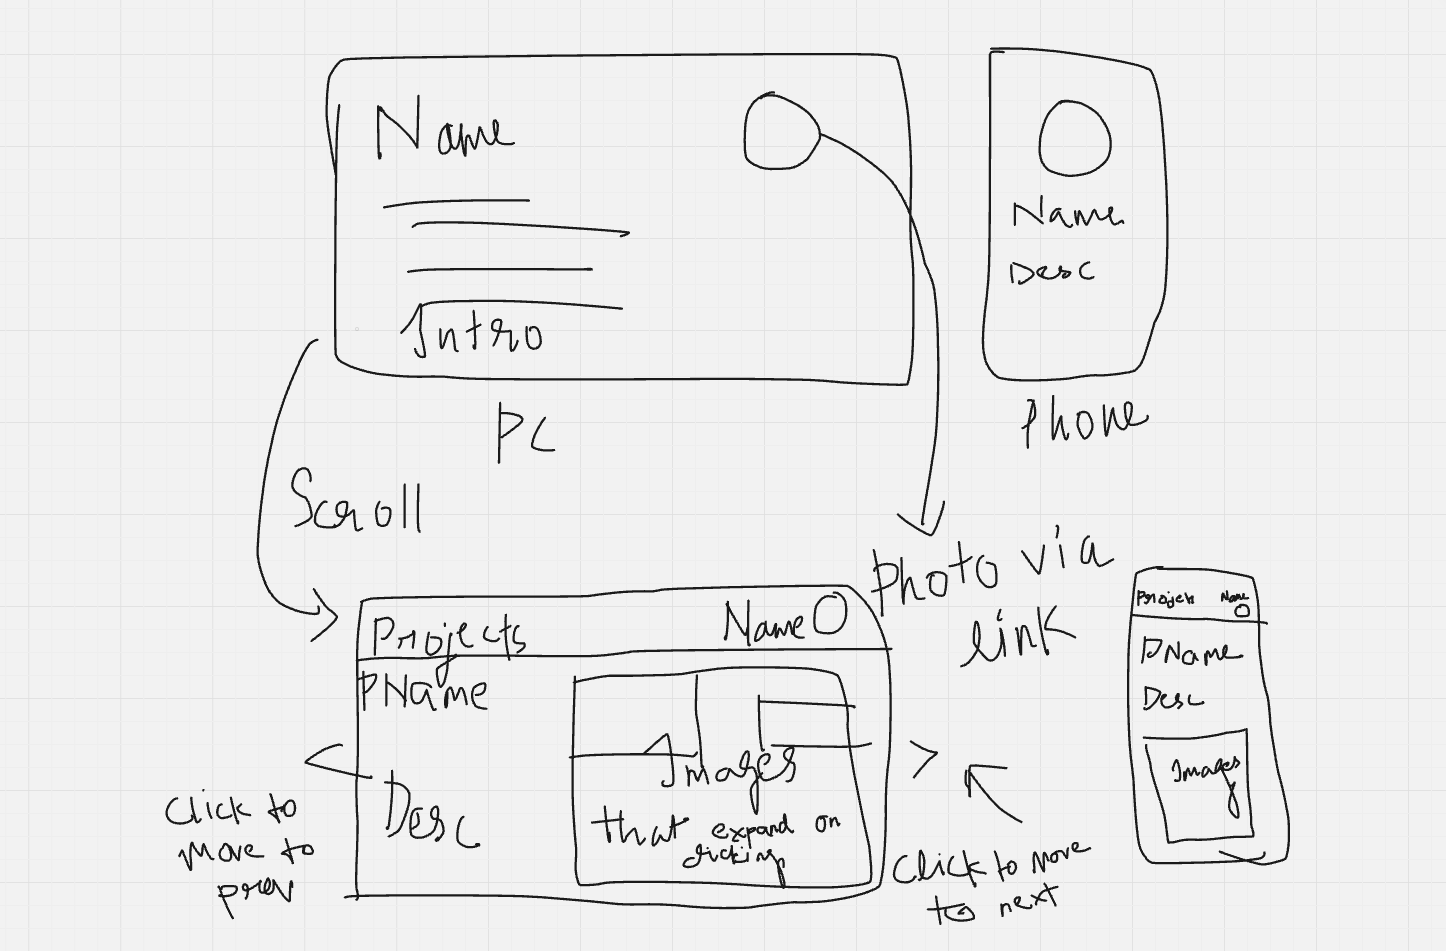 Name
Intro
PC
Name
Desc
Phone
Scroll
Photo via
link
Projects
Name
PName
Desc
Images
that expand on
clicking
Click to
move to
prev
Click to move
to next
Projects
Name
PName
Desc
Images